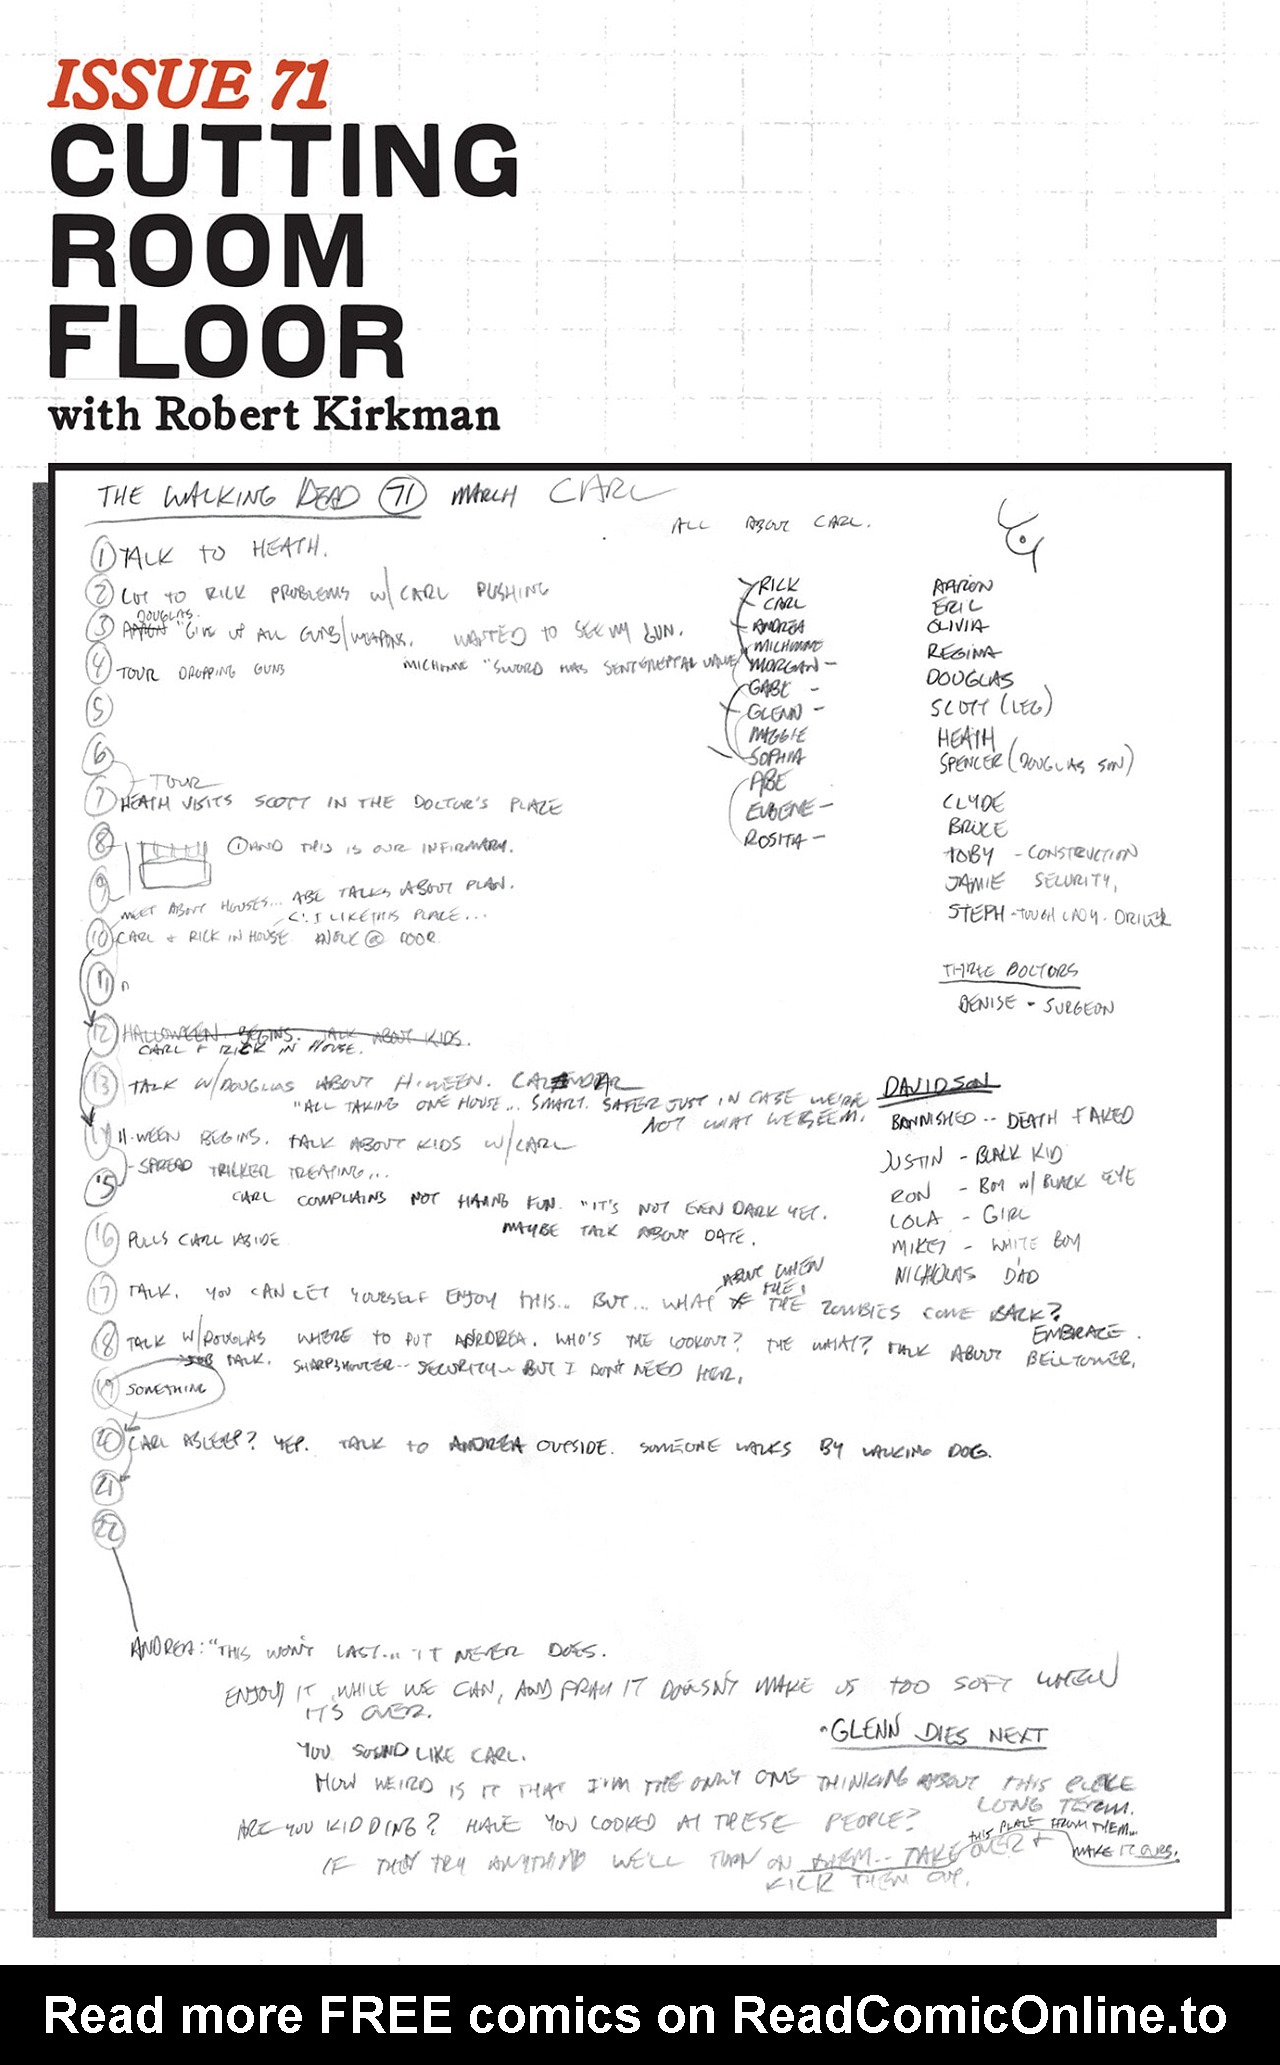 ISSUE 71
CUTTING
ROOM
FLOOR
with Robert Kirkman
THE WALKING DEAD 71 MARCH CARL
ALL ABOUT CARL.
1 TALK TO HEATH.
2 CUT TO RICK PROBLEMS W/CARL PUSHING
DOUGLAS.
3 AARON "GIVE UP ALL GUNS/WEAPONS. WANTED TO SEE MY GUN.
4 TOUR DROPPING GUNS MICHONNE "SWORD HAS
5
6
- TOUR
7 HEATH VISITS SCOTT IN THE DOCTOR'S PLACE
8 1 AND THIS IS OUR INFIRMARY.
9
MEET ABOUT HOUSES... ABE TALKS ABOUT PLAN.
I LIKE THIS PLACE...
10 CARL + RICK IN HOUSE @ DOOR
11 "
12 HALLOWEEN BEGINS. TALK ABOUT KIDS.
CARL + RICK IN HOUSE.
13 TALK W/DOUGLAS ABOUT H-WEEN. CALENDAR
"ALL TAKING ONE HOUSE... SMART. SAFER JUST IN CASE WE'RE
NOT WHAT WE SEEM.
14 H-WEEN BEGINS. TALK ABOUT KIDS W/CARL
- SPREAD TRICKER TREATING...
15
CARL COMPLAINS NOT HAVING FUN. "IT'S NOT EVEN DARK YET.
MAYBE TALK ABOUT DATE.
16 PULLS CARL ASIDE
ABOUT WHEN
17 TALK. YOU CAN LET YOURSELF ENJOY THIS... BUT... WHAT THE ZOMBIES COME BACK?
EMBRACE.
18 TALK W/DOUGLAS WHERE TO PUT ANDREA. WHO'S THE LOOKOUT? THE WHAT? TALK ABOUT BELLTOWER.
JOB TALK. SHARPSHOOTER-- SECURITY-- BUT I DON'T NEED HER.
19 SOMETHING
20 CARL ASLEEP? YEP. TALK TO ANDREA OUTSIDE. SOMEONE WALKS BY WALKING DOG.
21
22
RICK
CARL
ANDREA
MICHONNE
MORGAN -
GABE -
GLENN -
MAGGIE
SOPHIA
ABE
EUGENE -
ROSITA -
AARON
ERIC
OLIVIA
REGINA
DOUGLAS
SCOTT (LEG)
HEATH
SPENCER (DOUGLAS SON)
CLYDE
BRUCE
TOBY - CONSTRUCTION
JAMIE SECURITY,
STEPH - TOUGH LADY - DRIVER
THREE DOCTORS
DENISE - SURGEON
DAVIDSON
BANNISHED -- DEATH FAKED
JUSTIN - BLACK KID
RON - BOY W/BLACK EYE
LOLA - GIRL
MIKEY - WHITE BOY
NICHOLAS DAD
ANDREA: "THIS WON'T LAST... IT NEVER DOES.
ENJOY IT WHILE WE CAN, AND PRAY IT DOESN'T MAKE US TOO SOFT WHEN
IT'S OVER.
• GLENN DIES NEXT
YOU SOUND LIKE CARL.
HOW WEIRD IS IT THAT I'M THE ONLY ONE THINKING ABOUT THIS PLACE
LONG TERM.
ARE YOU KIDDING? HAVE YOU LOOKED AT THESE PEOPLE?
THIS PLACE FROM THEM...
IF THEY TRY ANYTHING WE'LL TURN ON THEM-- TAKE OVER + MAKE IT OURS.
KICK THEM OUT.
Read more FREE comics on ReadComicOnline.to